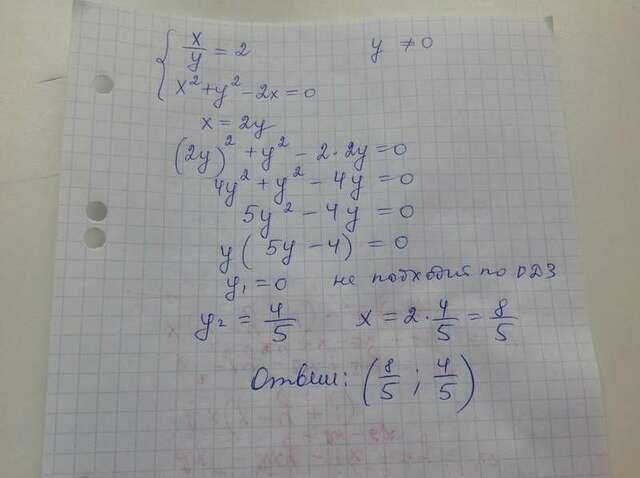 x/y = 2 y ≠ 0
x² + y² - 2x = 0
x = 2y
(2y)² + y² - 2·2y = 0
4y² + y² - 4y = 0
5y² - 4y = 0
y(5y - 4) = 0
y₁ = 0 не подходит по ОДЗ
y₂ = 4/5 x = 2·4/5 = 8/5
Ответ: (8/5 ; 4/5)